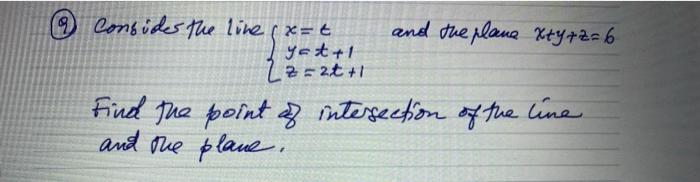 9 Consider the line { x = t and the plane x+y+z=6
y = t + 1
z = 2t + 1
Find the point of intersection of the line
and the plane.